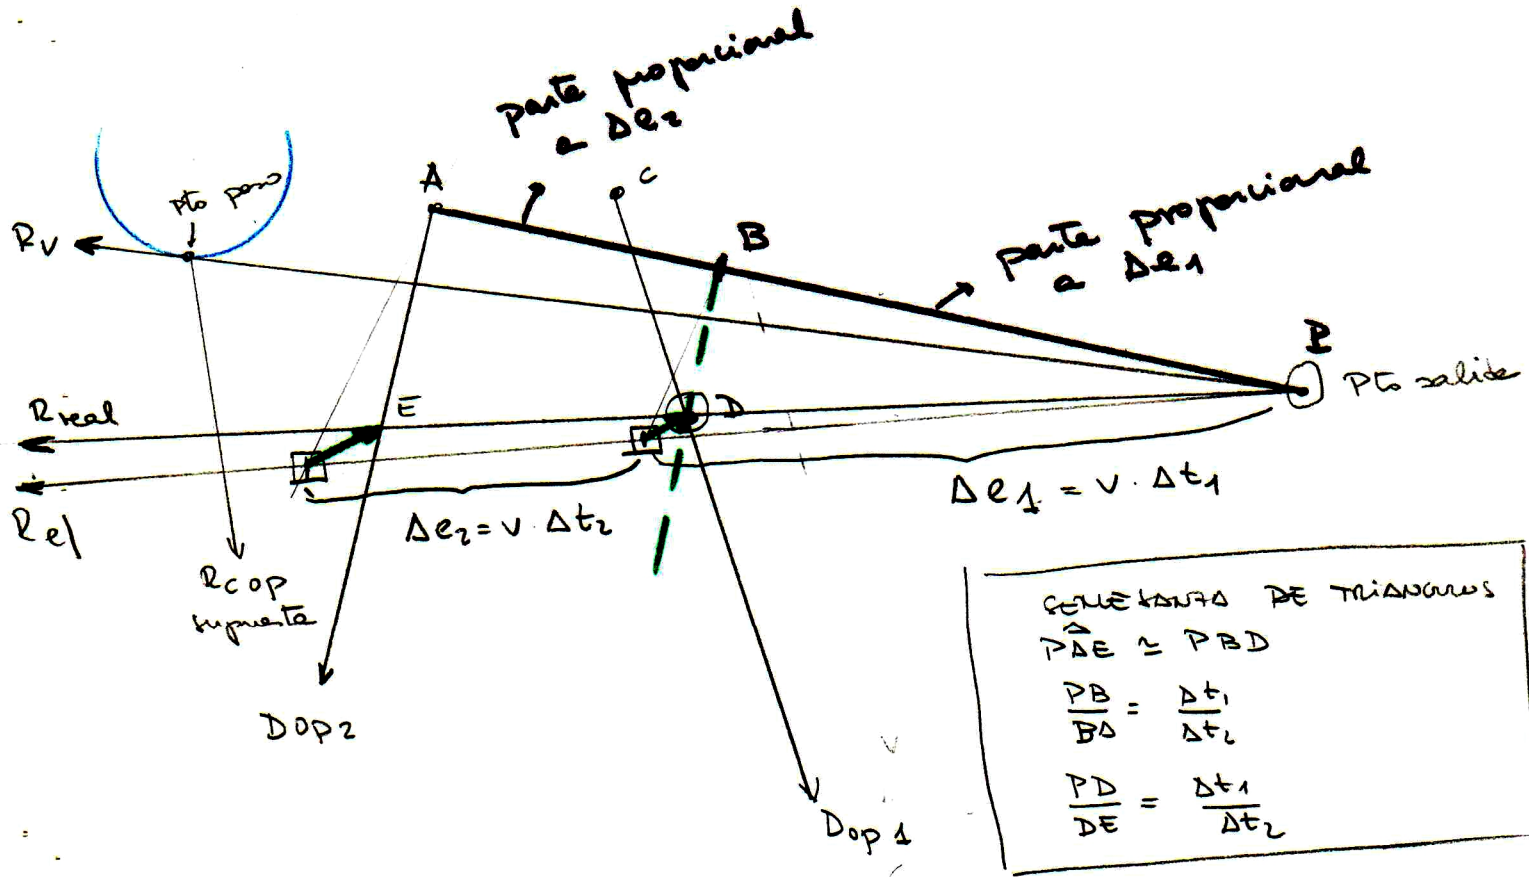 parte proporcional
a Δe₂
A
C
pto paso
Rv
B
parte proporcional
a Δe₁
P
Pto salida
Rreal
E
D
Ref
Δe₂ = v · Δt₂
Δe₁ = v · Δt₁
Rcop
supuesta
Dop2
Dop1
SEMEJANZA DE TRIANGULOS
PAE ≃ PBD
PB/BA = Δt₁/Δt₂
PD/DE = Δt₁/Δt₂